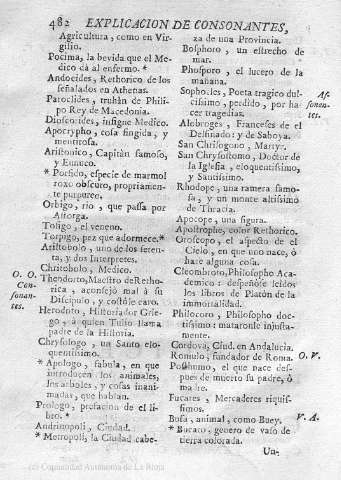 482 EXPLICACION DE CONSONANTES,
Agricultura, como en Virgilio.
Pocima, la bevida que el Medico dà al enfermo. *
Andocides, Rethorico de los
señalados en Athenas.
Patoclides, truhàn de Philipo Rey de Macedonia.
Dioscorides, insigne Medico.
Apocrypho, cosa fingida, y
mentirosa.
Aristonico, Capitàn famoso,
y Eunuco.
* Porfido, especie de marmol
roxo obscuro, propriamente purpureo.
Orbigo, rio, que passa por
Astorga.
Tosigo, el veneno.
Torpigo, pez que adormece. *
Aristobolo, uno de los setenta, y dos Interpretes.
Christobolo, Medico.
O. O. Consonantes.
Theodorto, Maestro de Rethorica, aconsejó mal à su
Discipulo, y costóle caro.
Herodoto, Historiador Griego, à quien Tulio llama
padre de la Historia.
Chrysologo, un Santo eloquentissimo.
* Apologo, fabula, en que
introducen los animales,
los arboles, y cosas inanimadas, que hablan.
Prologo, prefacion de el libro. *
Andrinopoli, Ciudad.
* Metropoli, la Ciudad cabeza de una Provincia.
Bosphoro, un estrecho de
mar.
Phosporo, el lucero de la
mañana.
As-sonantes.
Sophocles, Poeta tragico dulcissimo, perdido, por hacer tragedias.
Alobroges, Franceses de el
Delfinado: y de Saboya.
San Chrisogono, Martyr.
San Chrysostomo, Doctor de
la Iglesia, eloquentissimo,
y Santissimo.
Rhodope, una ramera famosa, y un monte altissimo
de Thracia.
Apocope, una figura.
Apostrophe, color Rethorico.
Oroscopo, el aspecto de el
Cielo, en que uno nace, ò
hace alguna cosa.
Cleombroto, Philosopho Academico: despeñose leidos
los libros de Platòn de la
inmortalidad.
Philocoro, Philosopho doctissimo: mataronle injustamente.
Cordova, Ciud. en Andalucia.
O. V.
Romulo, fundador de Roma.
Posthumo, el que nace despues de muerto su padre, ò
madre.
Fucares, Mercaderes riquissimos.
V. A.
Bufa, animal, como Buey.
* Bucaro, genero de vaso de
tierra colorada.
Un-
(c) Comunidad Autónoma de La Rioja